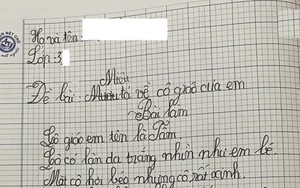 Họ và tên:
Lớp: 3
Miêu
Đề bài: Mươu tả về cô giáo của em
Bài làm
Cô giáo em tên là Tâm.
Cô có làn da trắng nhìn như em bé.
Mặt cô hơi béo nhưng cô rất xinh.